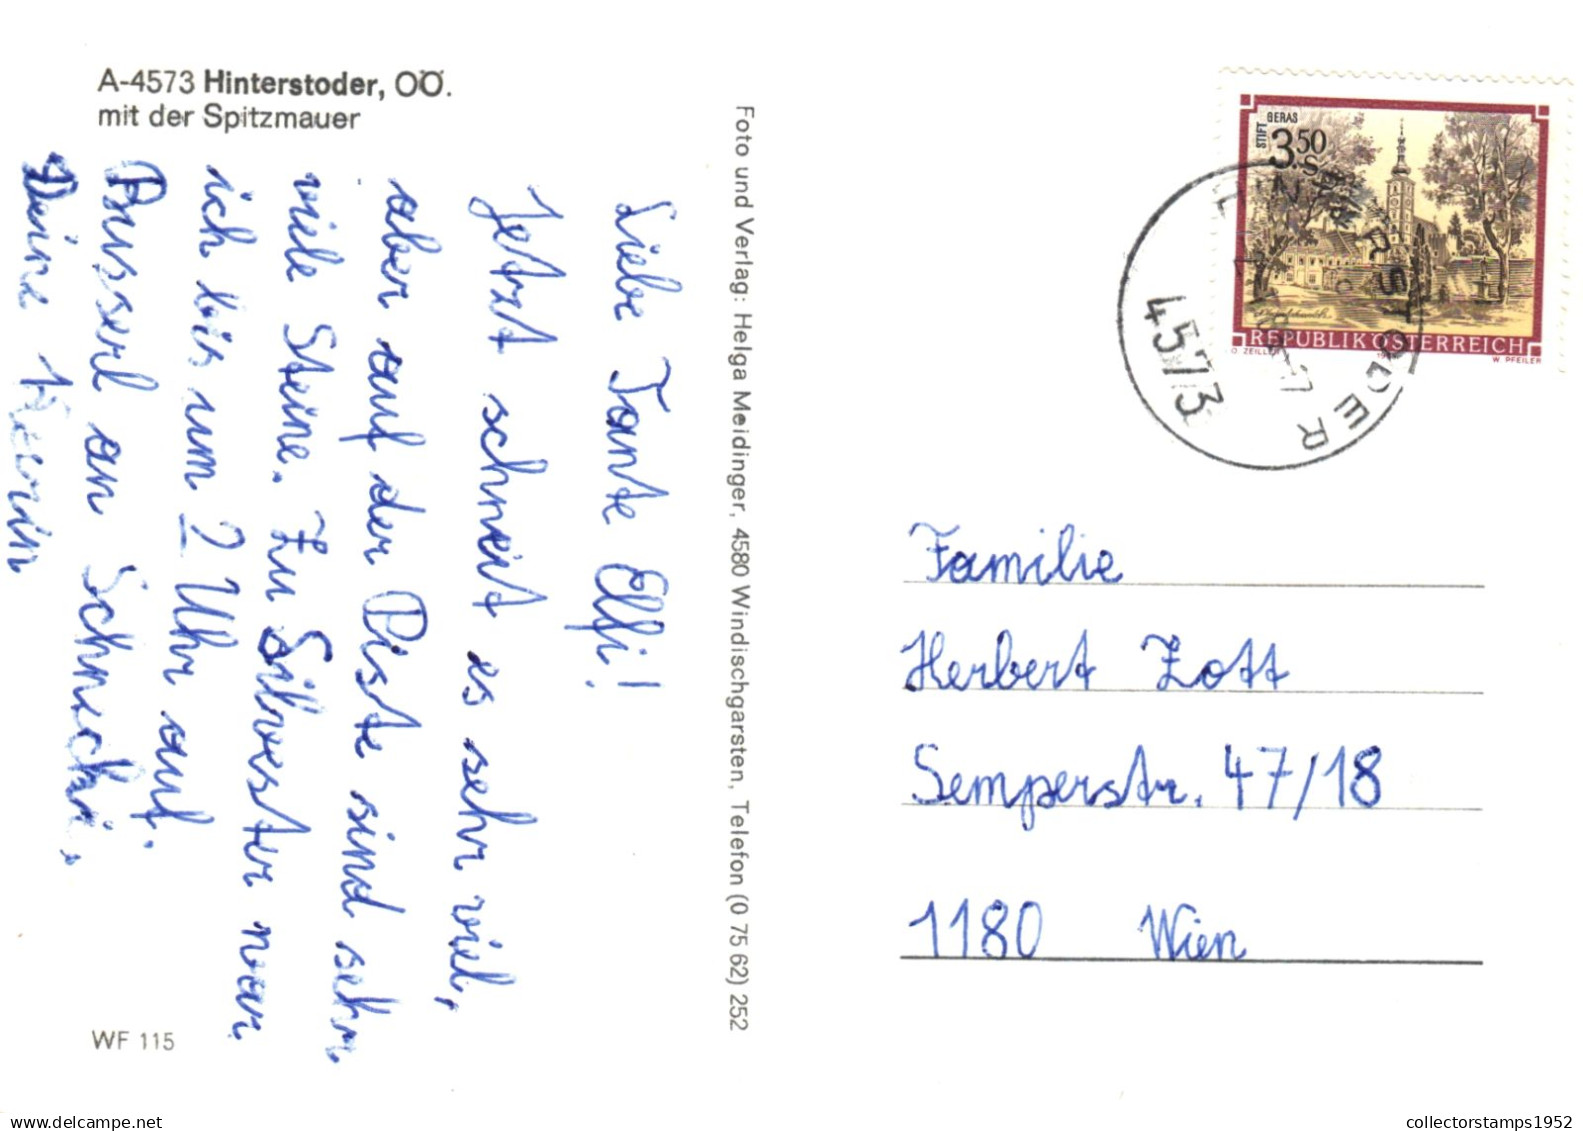 A-4573 Hinterstoder, OÖ.
mit der Spitzmauer
Liebe Tante Elfi!
Jetzt schneit es sehr viel,
aber auf der Piste sind sehr
viele Steine. Zu Silvester war
ich bis um 2 Uhr auf.
Busserl an Schnucki,
Deine
WF 115
Foto und Verlag: Helga Meidinger, 4580 Windischgarsten, Telefon (0 75 62) 252
STIFT GERAS
3.50
S
REPUBLIK ÖSTERREICH
W. PFEILER
HINTERSTODER
4573
Familie
Herbert Zott
Semperstr. 47/18
1180 Wien
collectorstamps1952